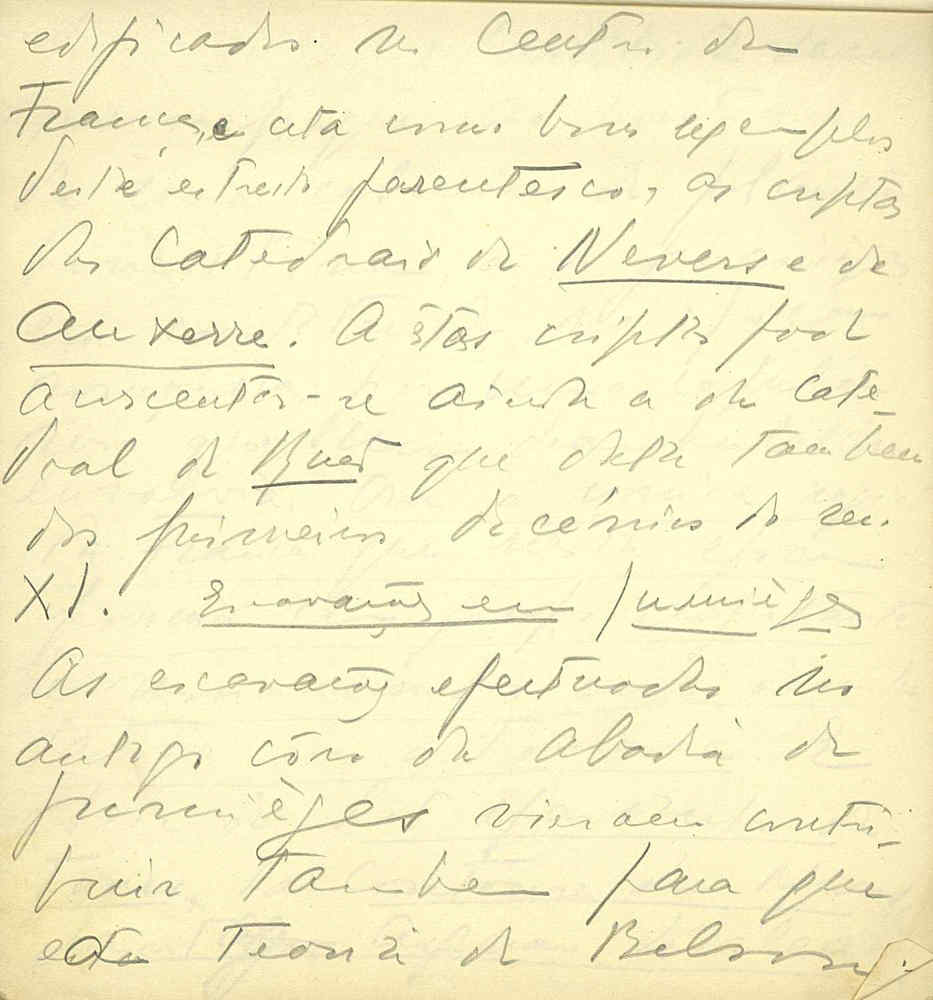 edificados no Centro da
França, e cita como bons exemplos
deste estreito parentesco, as criptas
das Catedrais de Nevers e de
Auxerre. A estas criptas pode
acrescentar-se ainda a da Cate-
dral de que data tambem
dos primeiros decénios do sec.
XI. Escavações em Jumièges
As escavações efectuadas no
antigo côro da Abadia de
Jumièges vieram contri-
buir tambem para que
esta Teoria de